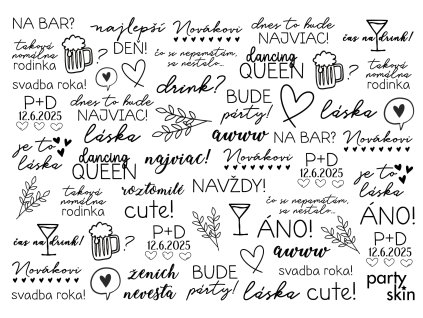 NA BAR?
najlepší
DEŇ!
Novákovi
dnes to bude
NAJVIAC!
čas na drink!
taková
nomálna
rodinka
?
čo si nepamätám,
sa nestalo...
dancing
QUEEN
?
taková
nomálna
rodinka
svadba roka!
drink?
svadba roka!
P+D
12.6.2025
dnes to bude
NAJVIAC!
BUDE
párty!
láska
P+D
12.6.2025
láska
awww
NA BAR?
Novákovi
je to
láska
dancing
QUEEN
najviac!
Novákovi
P+D
12.6.2025
je to
láska
taková
nomálna
rodinka
roztomilé
cute!
NAVŽDY!
čo si nepamätám,
sa nestalo...
ÁNO!
čas na drink!
?
P+D
12.6.2025
ÁNO!
P+D
12.6.2025
awww
Novákovi
ženích
nevesta
BUDE
párty!
svadba roka!
svadba roka!
láska
cute!
party
skin